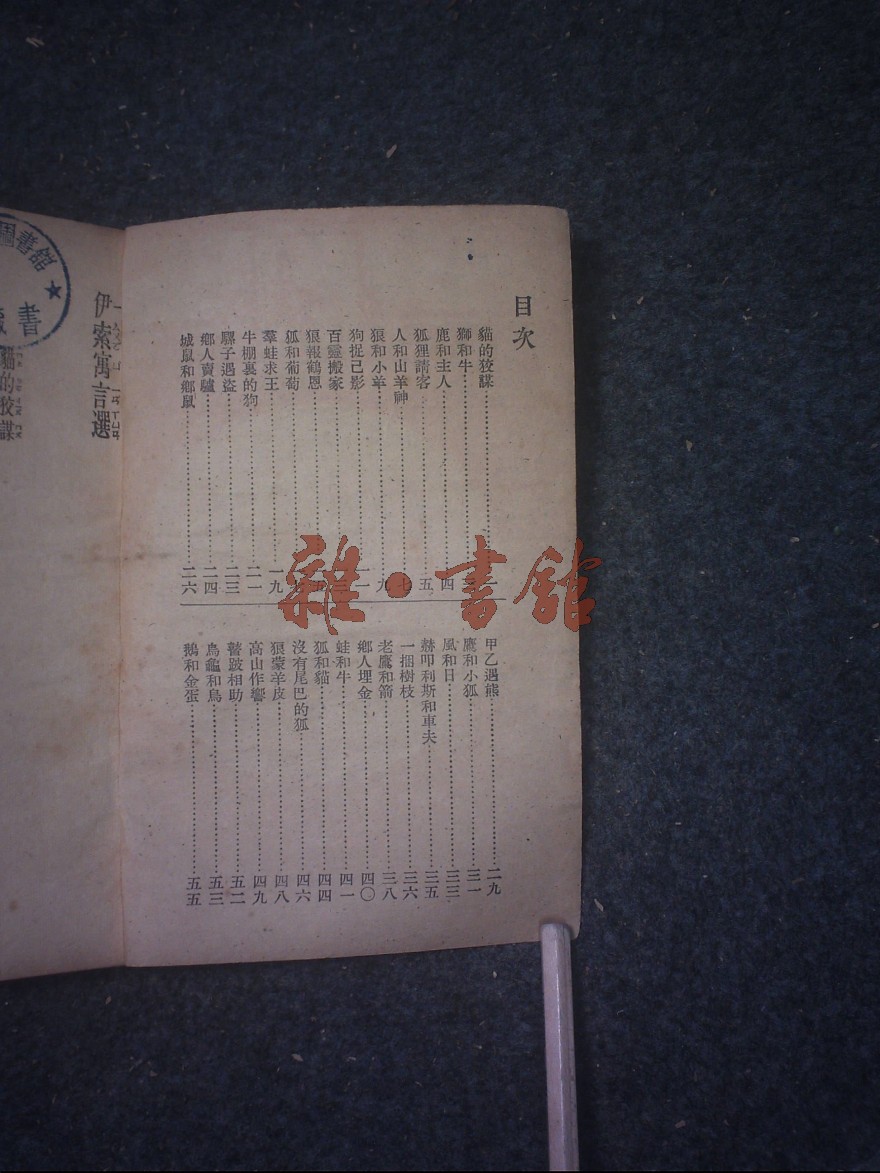 目次
貓的狡謀……一
獅和牛……三
鹿和主人……四
狐狸請客……五
人和山羊神……七
狼和小羊……九
狗捉己影……一一
百靈搬家
狼報鶴恩
狐和葡萄
羣蛙求王……一九
牛棚裏的狗……二一
騾子遇盜……二三
鄉人賣驢……二四
城鼠和鄉鼠……二六
甲乙遇熊……二九
鷹和小狐……三一
風和日……三三
赫叩利斯和車夫……三五
一捆樹枝……三六
老鷹和箭……三八
鄉人埋金……四〇
蛙和牛……四一
狐和貓……四四
沒有尾巴的狐……四六
狼蒙羊皮……四八
高山作響……四九
瞽跛相助……五二
烏龜和鳥……五三
鵝和金蛋……五五
伊索寓言選
貓的狡謀
圖書館
書
雜·書館